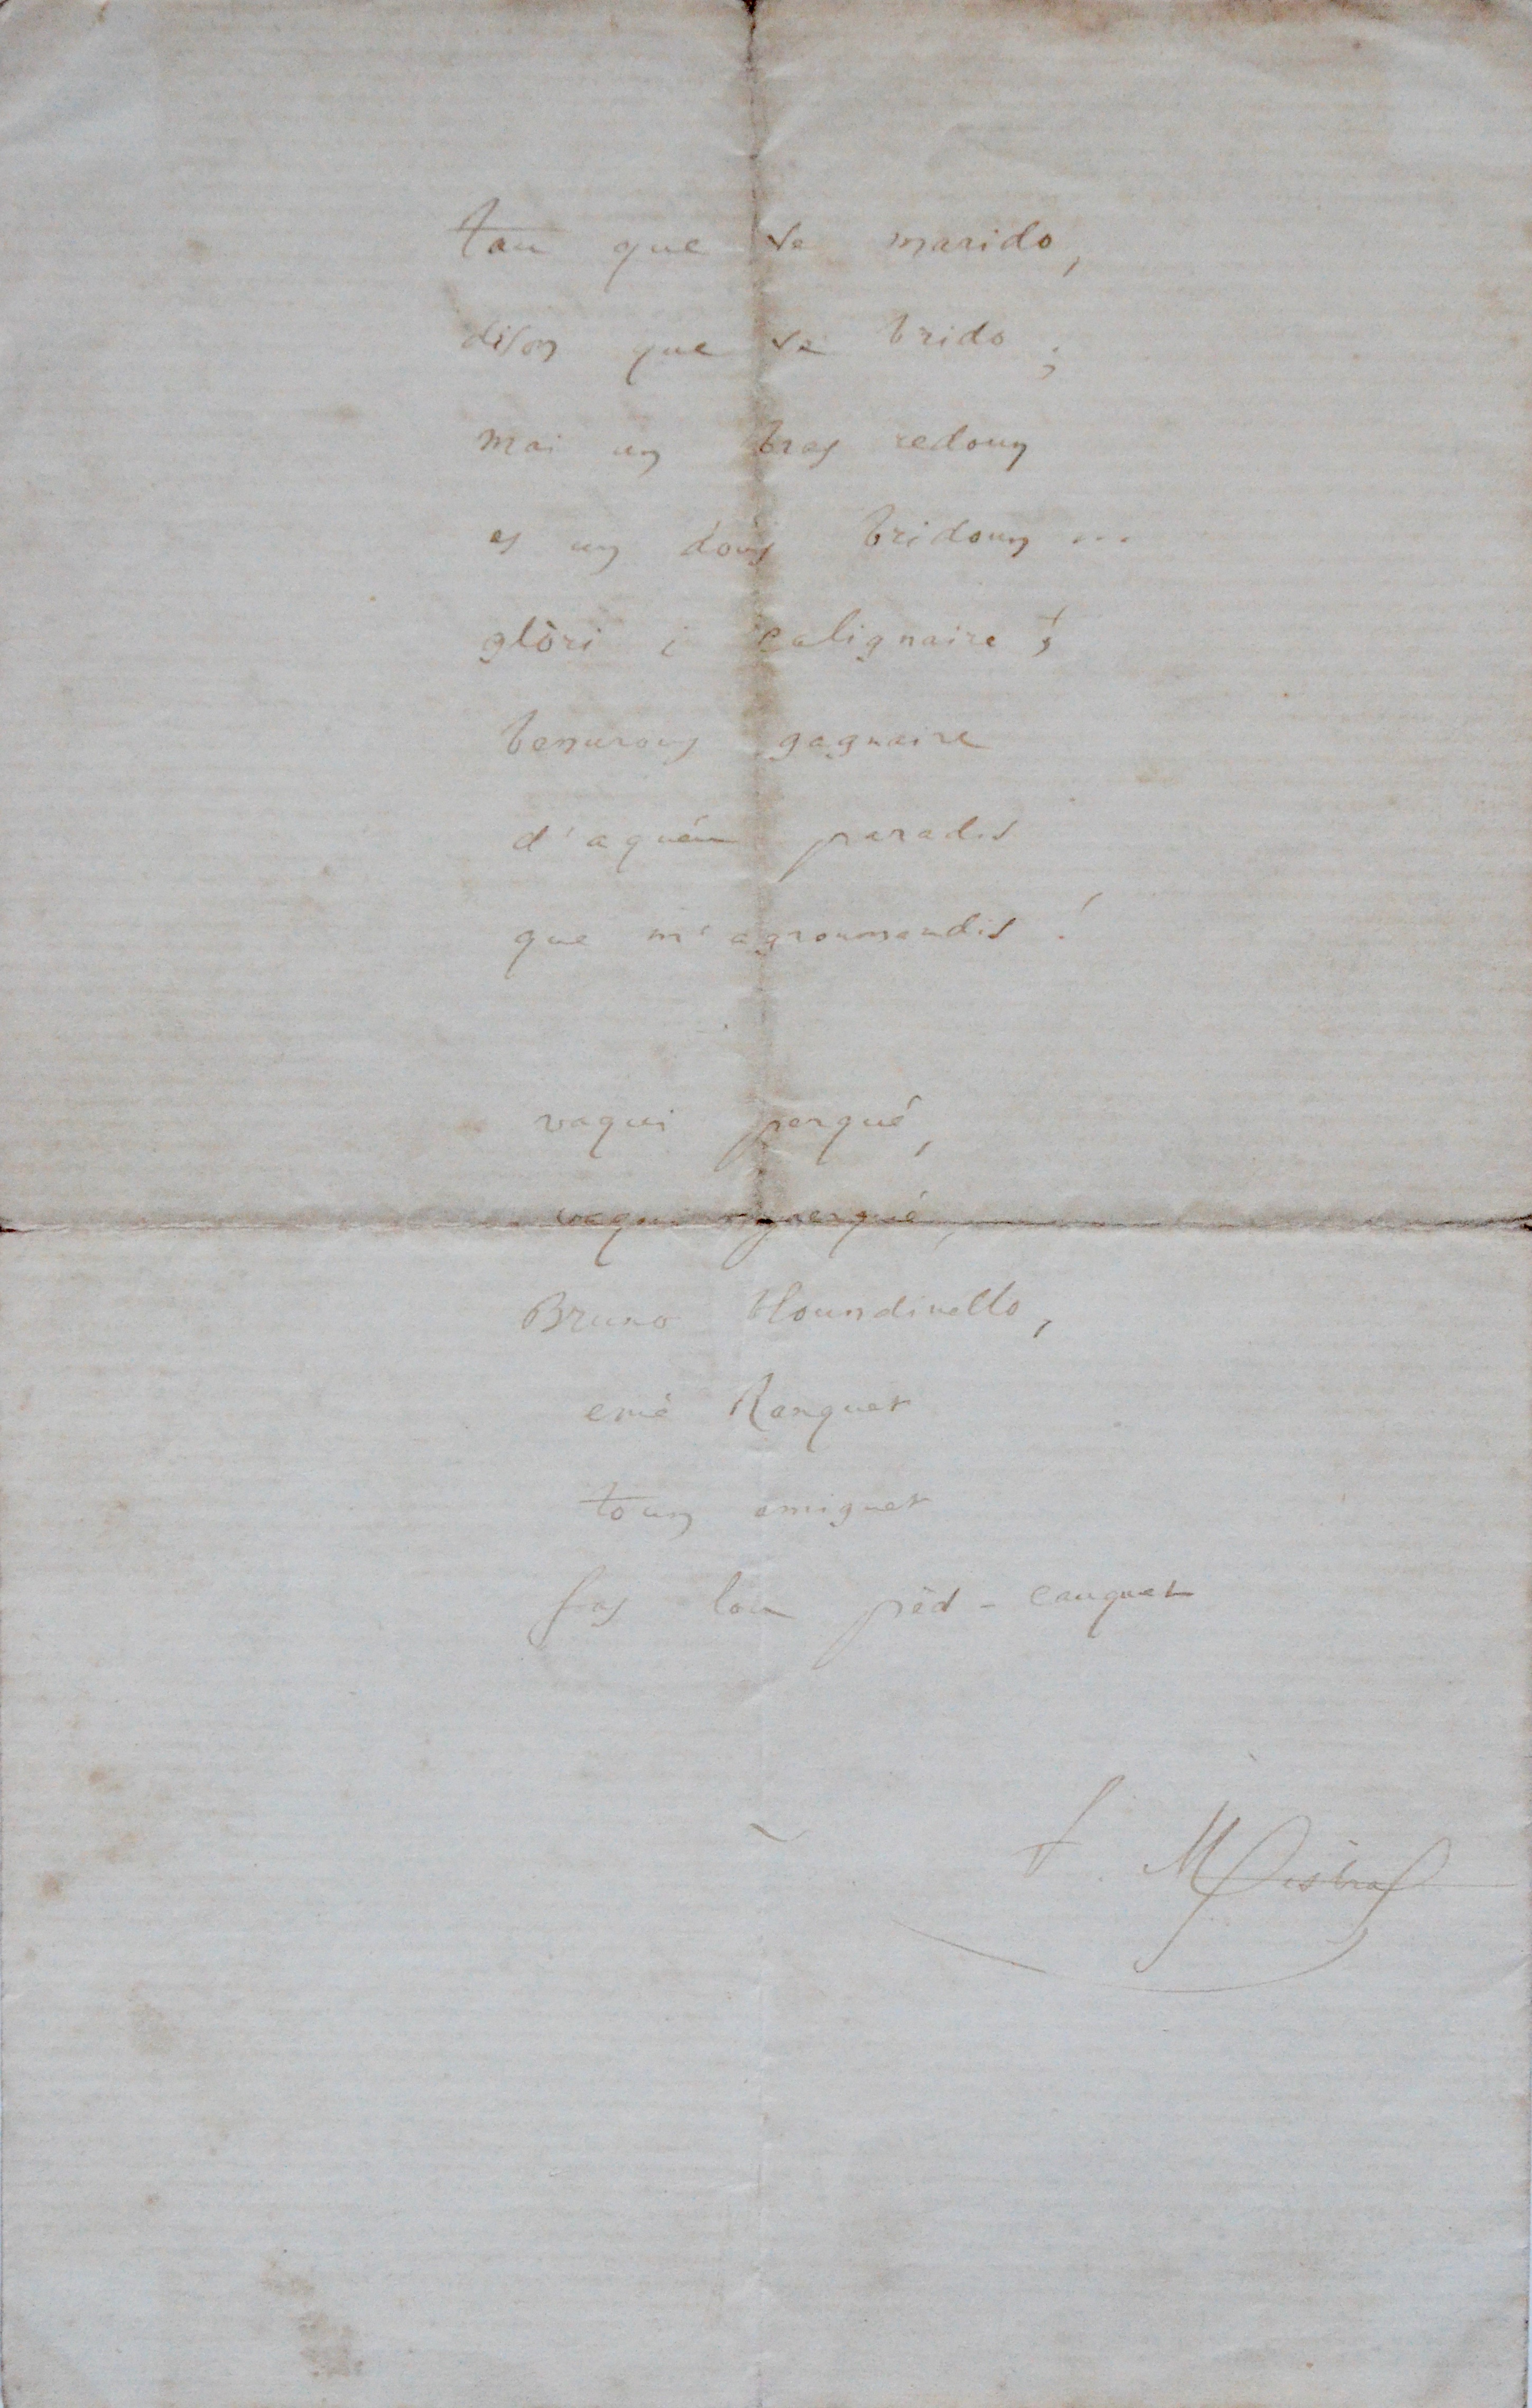 tau que se marido,
dison que se brido ;
mai un bras redoun
es un dous bridoun ...
glòri i calignaire !
benurous gagnaire
d'aquéu paradis
que m'agroumandis !
vaqui perqué,
vaqui perqué,
Bruno bloundinello,
emé Ranquet
toun amiguet
fas lou pèd-cauquet
F. Mistral